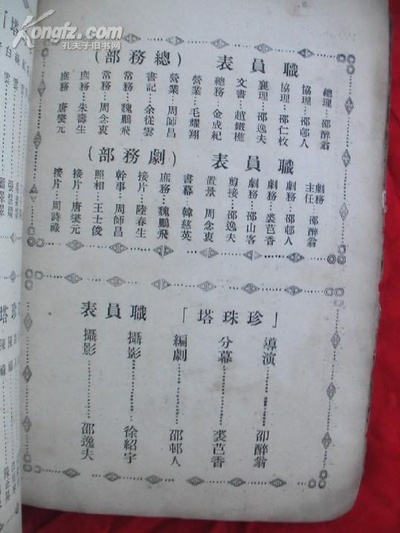 職員表（總務部）
總理…邵醉翁
協理…邵邨人
協理…邵仁枚
襄理…邵逸夫
文書…趙鐵樵
總務…金成紀
營業…毛耀翔
營業…周師昌
書記…余從雲
常務…魏鵬飛
常務…周念衷
庶務…朱壽生
庶務…唐燮元
職員表（劇務部）
劇務主任 邵醉翁
劇務…邵邨人
劇務…裘芑香
劇務…邵山客
剪接…邵逸夫
置景 周念衷
書幕 韓慈英
庶務…魏鵬飛
接片…陸春生
幹事…周師昌
照相…王士俊
接片…唐燮元
接片…周詩祿
「珍珠塔」職員表
導演………邵醉翁
分幕………裘芑香
編劇………邵邨人
攝影………徐紹宇
攝影………邵逸夫
kongfz.com
孔夫子旧书网